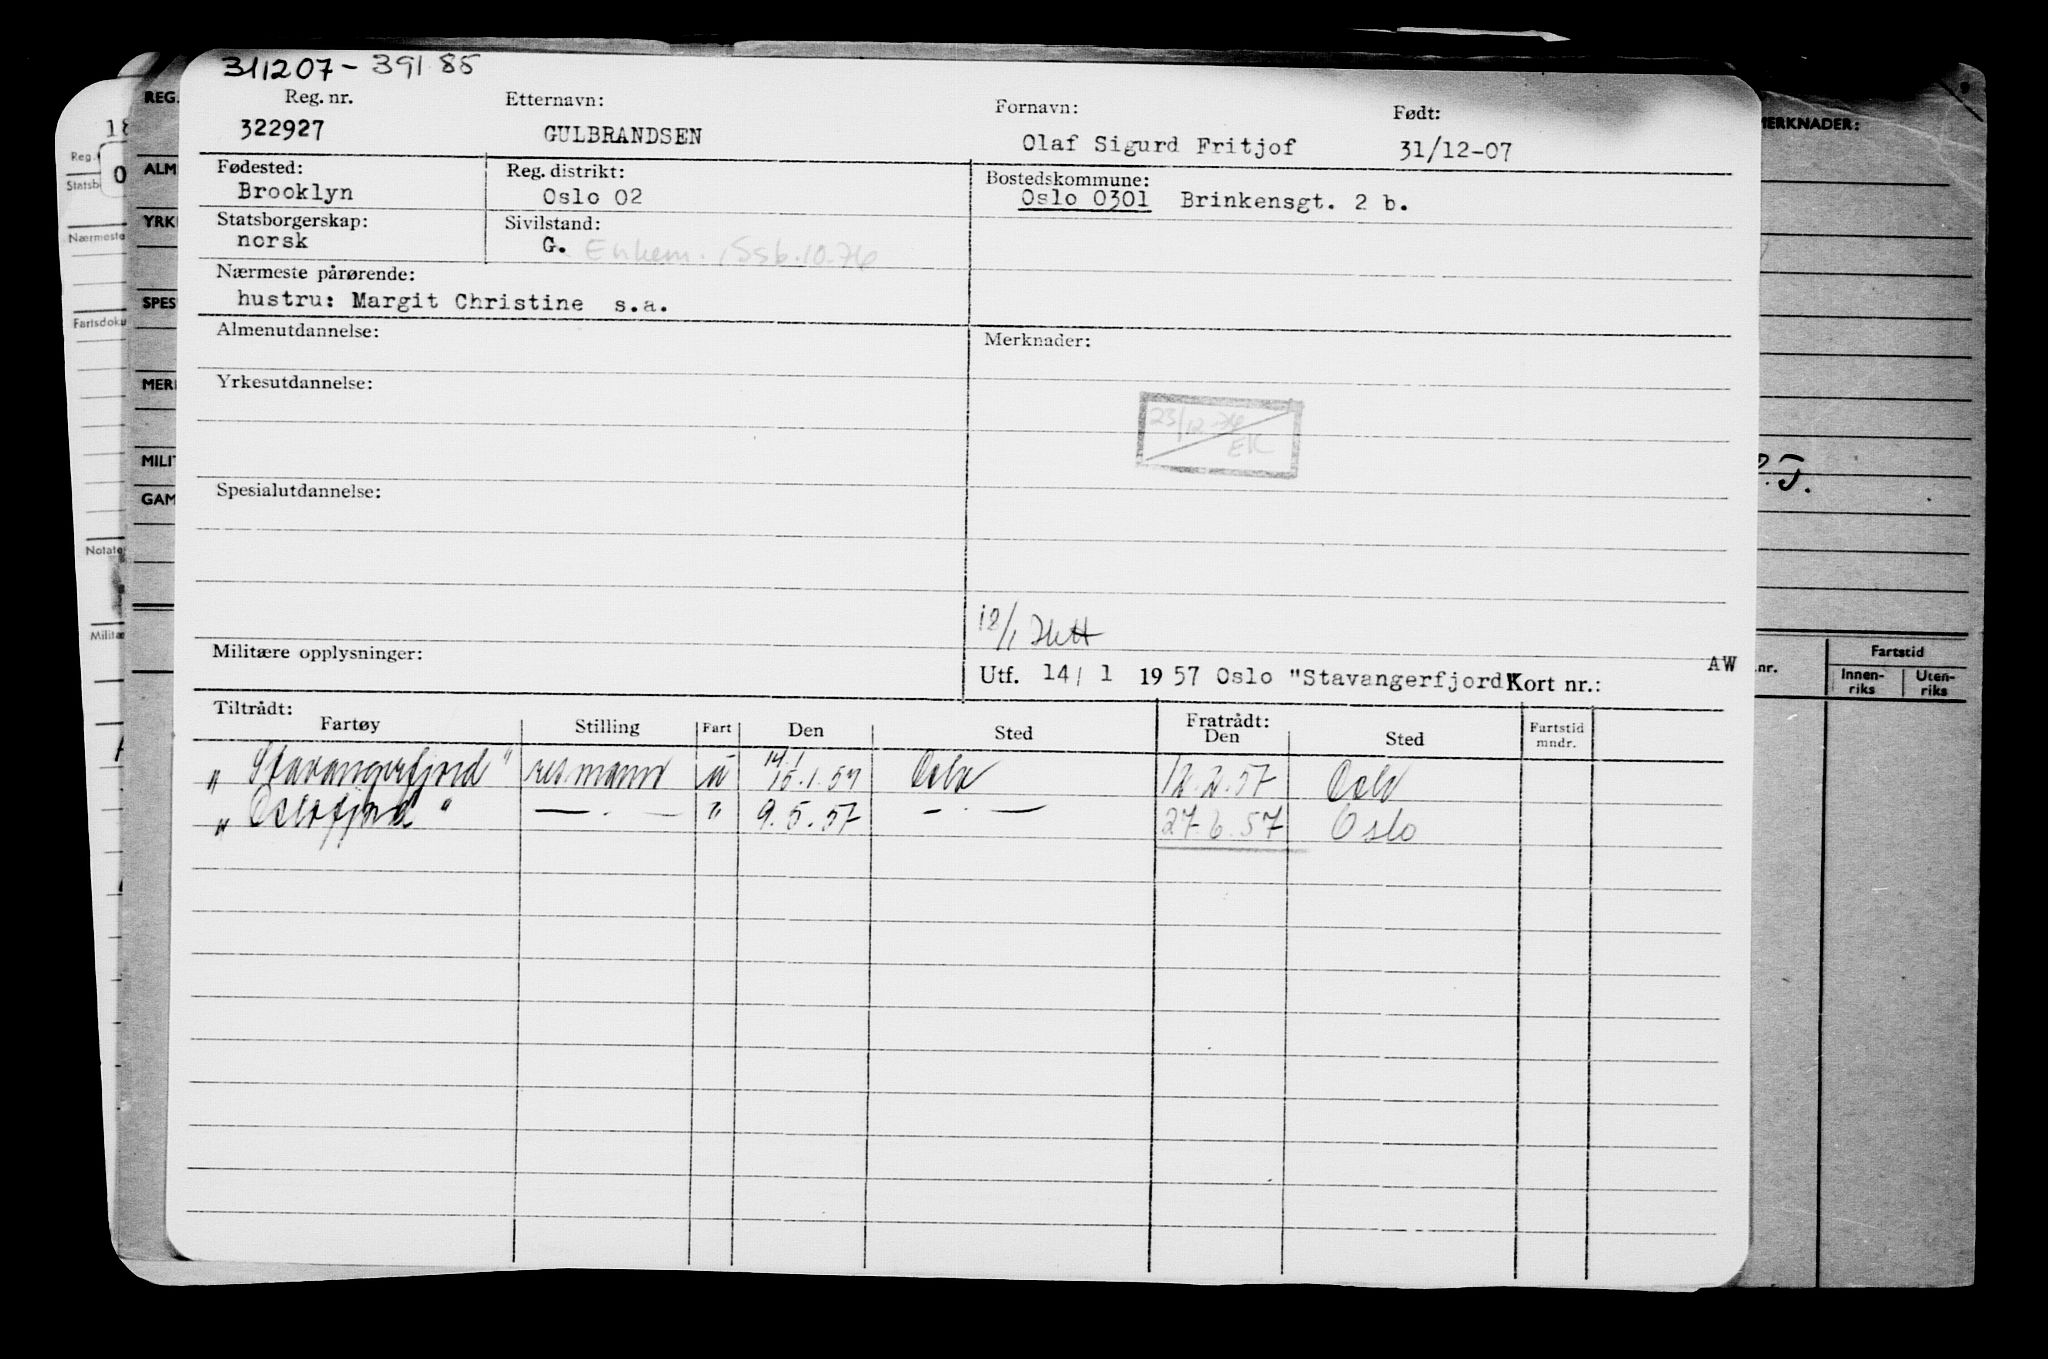 311207 - 391 85
Reg. nr. Etternavn: Fornavn: Født:
322927 GULBRANDSEN Olaf Sigurd Fritjof 31/12-07
Fødested: Reg. distrikt: Bostedskommune:
Brooklyn Oslo 02 Oslo 0301 Brinkensgt. 2 b.
Statsborgerskap: Sivilstand:
norsk G. Enkem. 10.76
Nærmeste pårørende:
hustru: Margit Christine s.a.
Almenutdannelse: Merknader:
Yrkesutdannelse:
23/12 76
EK
Spesialutdannelse:
Militære opplysninger:
Utf. 14/1 1957 Oslo "Stavangerfjord" Kort nr.: AW
Tiltrådt: Fratrådt:
Fartøy Stilling Fart Den Sted Den Sted Fartstid mndr.
14.1
„ Stavangerfjord" resmann u 15.1.57 Oslo 12.2.57 Oslo
„ Oslofjord " — . — " 9.5.57 — . — 27.6.57 Oslo
18
Reg.
O
REG.
ALM
YRK
Nærmeste
SPES
MILIT
GAM
Notate
Militæ
MERKNADER:
P.T.
nr. Fartstid
Innen-riks Uten-riks